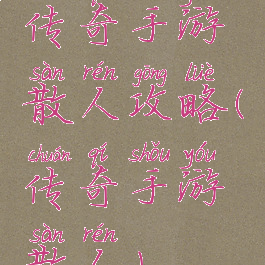 传奇手游
sàn rén gōng lüè
散人攻略(
chuán qí shǒu yóu
传奇手游
sàn rén
散人)